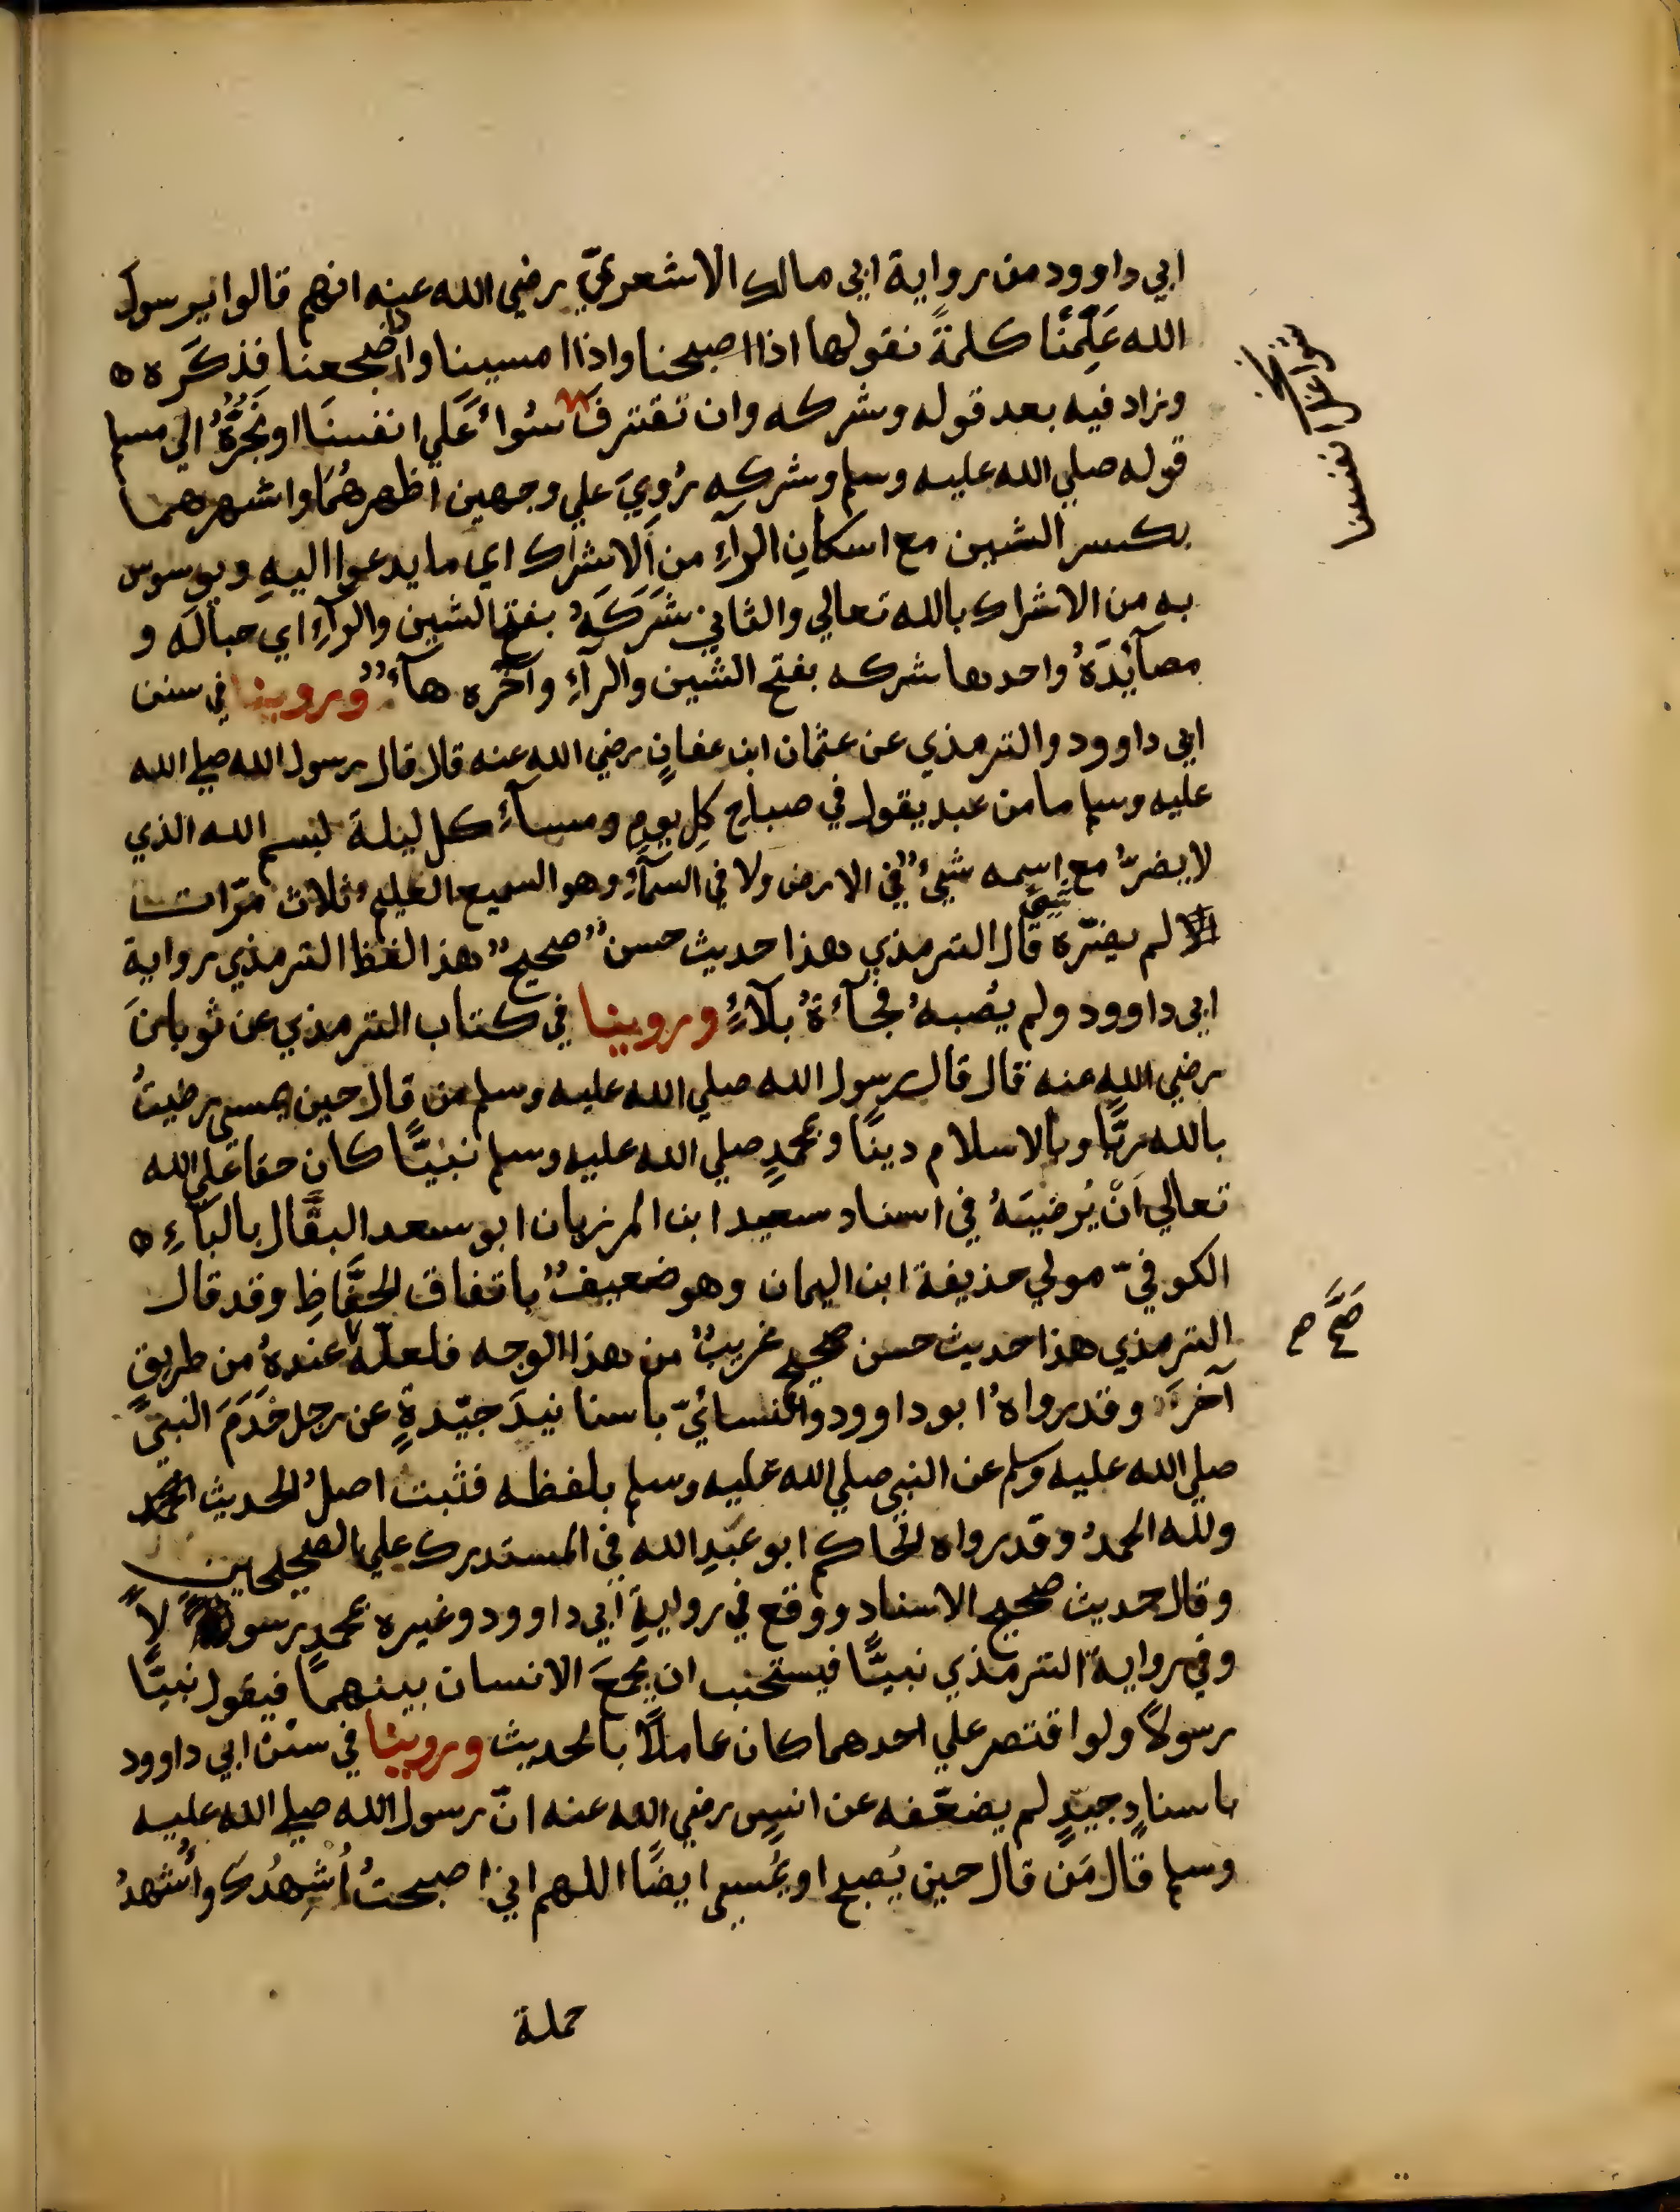 ابي داوود من رواية ابي مالك الاشعريّ رضي الله عنه انهم قالوا يرسول
الله عَلِّمْنَا كلمةً نقولها اذا اصبحنا واذا امسينا واضجعنا فذكَره ه
وزاد فيه بعد قوله وشركه وان نقترفَ سُوأً عَلي انفسنَا او نَجُرَّهُ الي مسلم
قوله صلي الله عليه وسلم وشركِه رُوِيَ علي وجهين اظهرهُمَا واشهرهما
بكسر الشين مع اسكانِ الرآءِ من اَلاشراك اي ما يدعوا اليهِ ويوسوس
به من الاشراك بالله تعالي والثاني شَرَكَهُ بفتح الشين والرآءِ اي حبالَه و
مصآيْدَهُ واحدها شركه بفتح الشين والرآءِ وآخره هآءٌ وروينا في سنن
ابي داوود والترمذي عن عثمان ابن عفانٍ رضي الله عنه قال قال رسول الله صلي الله
عليه وسلم مامن عبد يقول في صباح كلِ يومٍ ومسآءِ كل ليلة لبسم الله الذي
لا يضرّ مع اسمه شيءٌ في الارض ولا في السمآءِ وهو السميع العليم ثلاث مرّات
لم يضرّه شيٌ قال الترمذي هذا حديث حسنٌ صحيحٌ هذا لفظ الترمذي رواية
ابي داوود ولم يصُبهُ فجآءةُ بلآءٍ وروينا في كتاب الترمذي عن ثوبانَ
رضي الله عنه قال قال رسول الله صلي الله عليه وسلم من قال حين يمسي رضيتُ
بالله ربًّا وبالاسلام دينًا وبمحمدٍ صلي الله عليه وسلم نبيًّا كان حقا علي الله
تعالي اَنْ يُرضيَهُ في اسناد سعيد ابن المرزبان ابو سعد البقَّال بالبآءِ ه
الكوفيّ مولي حذيفة ابن اليمان وهو ضعيفٌ باتفاق الحفَّاظِ وقد قال
الترمذي هذا حديث حسن صحيح غريبٌ من هذا الوجه فلعلّه عندهُ من طريقٍ
آخرَ وقد رواهُ ابو داوود والنسائيّ باسنانيدَ جيّدةٍ عن رجل خَدَمَ النبيّ
صلي الله عليه وسلم عن النبي صلي الله عليه وسلم بلفظه فثبت اصلُ الحديث
ولله الحمدُ وقد رواه الحاكم ابو عبدِ الله في المستدرك علي الصحيحين
وقال حديث صحيح الاسناد ووقع في روايةِ ابي داوود وغيره بمحمدٍ رسولًا
وفي رواية الترمذي نبيًّا فيستحب ان يجمعَ الانسان بينهما فيقول نبيًّا
رسولًا ولو اقتصر علي احدهما كان عاملًا بالحديث وروينا في سنن ابي داوود
باسنادٍ جيّدٍ لم يضعّفه عن انسٍ رضي الله عنه انّ رسول الله صلي الله عليه
وسلم قال مَن قال حين يُصبح او يُمسي ايضًا اللهم اني اصبحتُ اُشهِدُكَ وأُشهدُ
حملة
علي انفسنا
صَحَّ